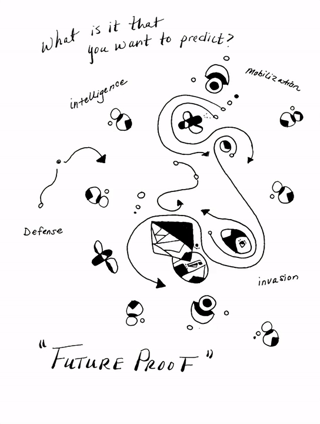 What is it that
you want to predict?
intelligence
Mobilization
Defense
invasion
"FUTURE PROOF"